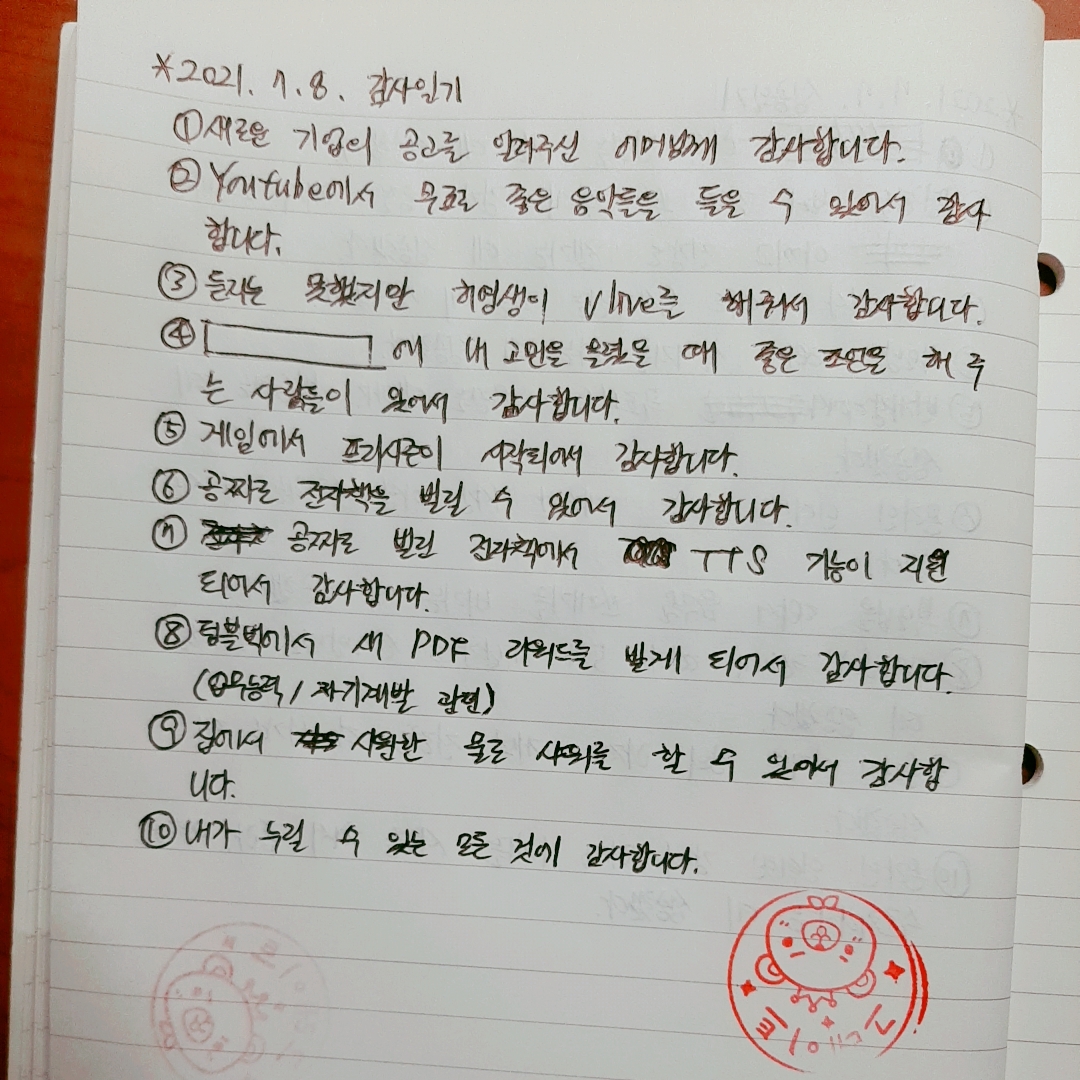 *2021. 7. 8. 감사일기
① 새로운 기업의 공고를 알려주신 어머님께 감사합니다.
② Youtube에서 무료로 좋은 음악들을 들을 수 있어서 감사
합니다.
③ 듣지는 못했지만 허영생이 Vlive를 해줘서 감사합니다.
④ 에 내 고민을 올렸을 때 좋은 조언을 해 주
는 사람들이 있어서 감사합니다.
⑤ 게임에서 프리시즌이 시작되어서 감사합니다.
⑥ 공짜로 전자책을 빌릴 수 있어서 감사합니다.
⑦ 공짜로 빌린 전자책에서 TTS 기능이 지원
되어서 감사합니다.
⑧ 텀블벅에서 새 PDF 리워드를 받게 되어서 감사합니다.
(업무능력/자기계발 관련)
⑨ 집에서 시원한 물로 샤워를 할 수 있어서 감사합
니다.
⑩ 내가 누릴 수 있는 모든 것에 감사합니다.